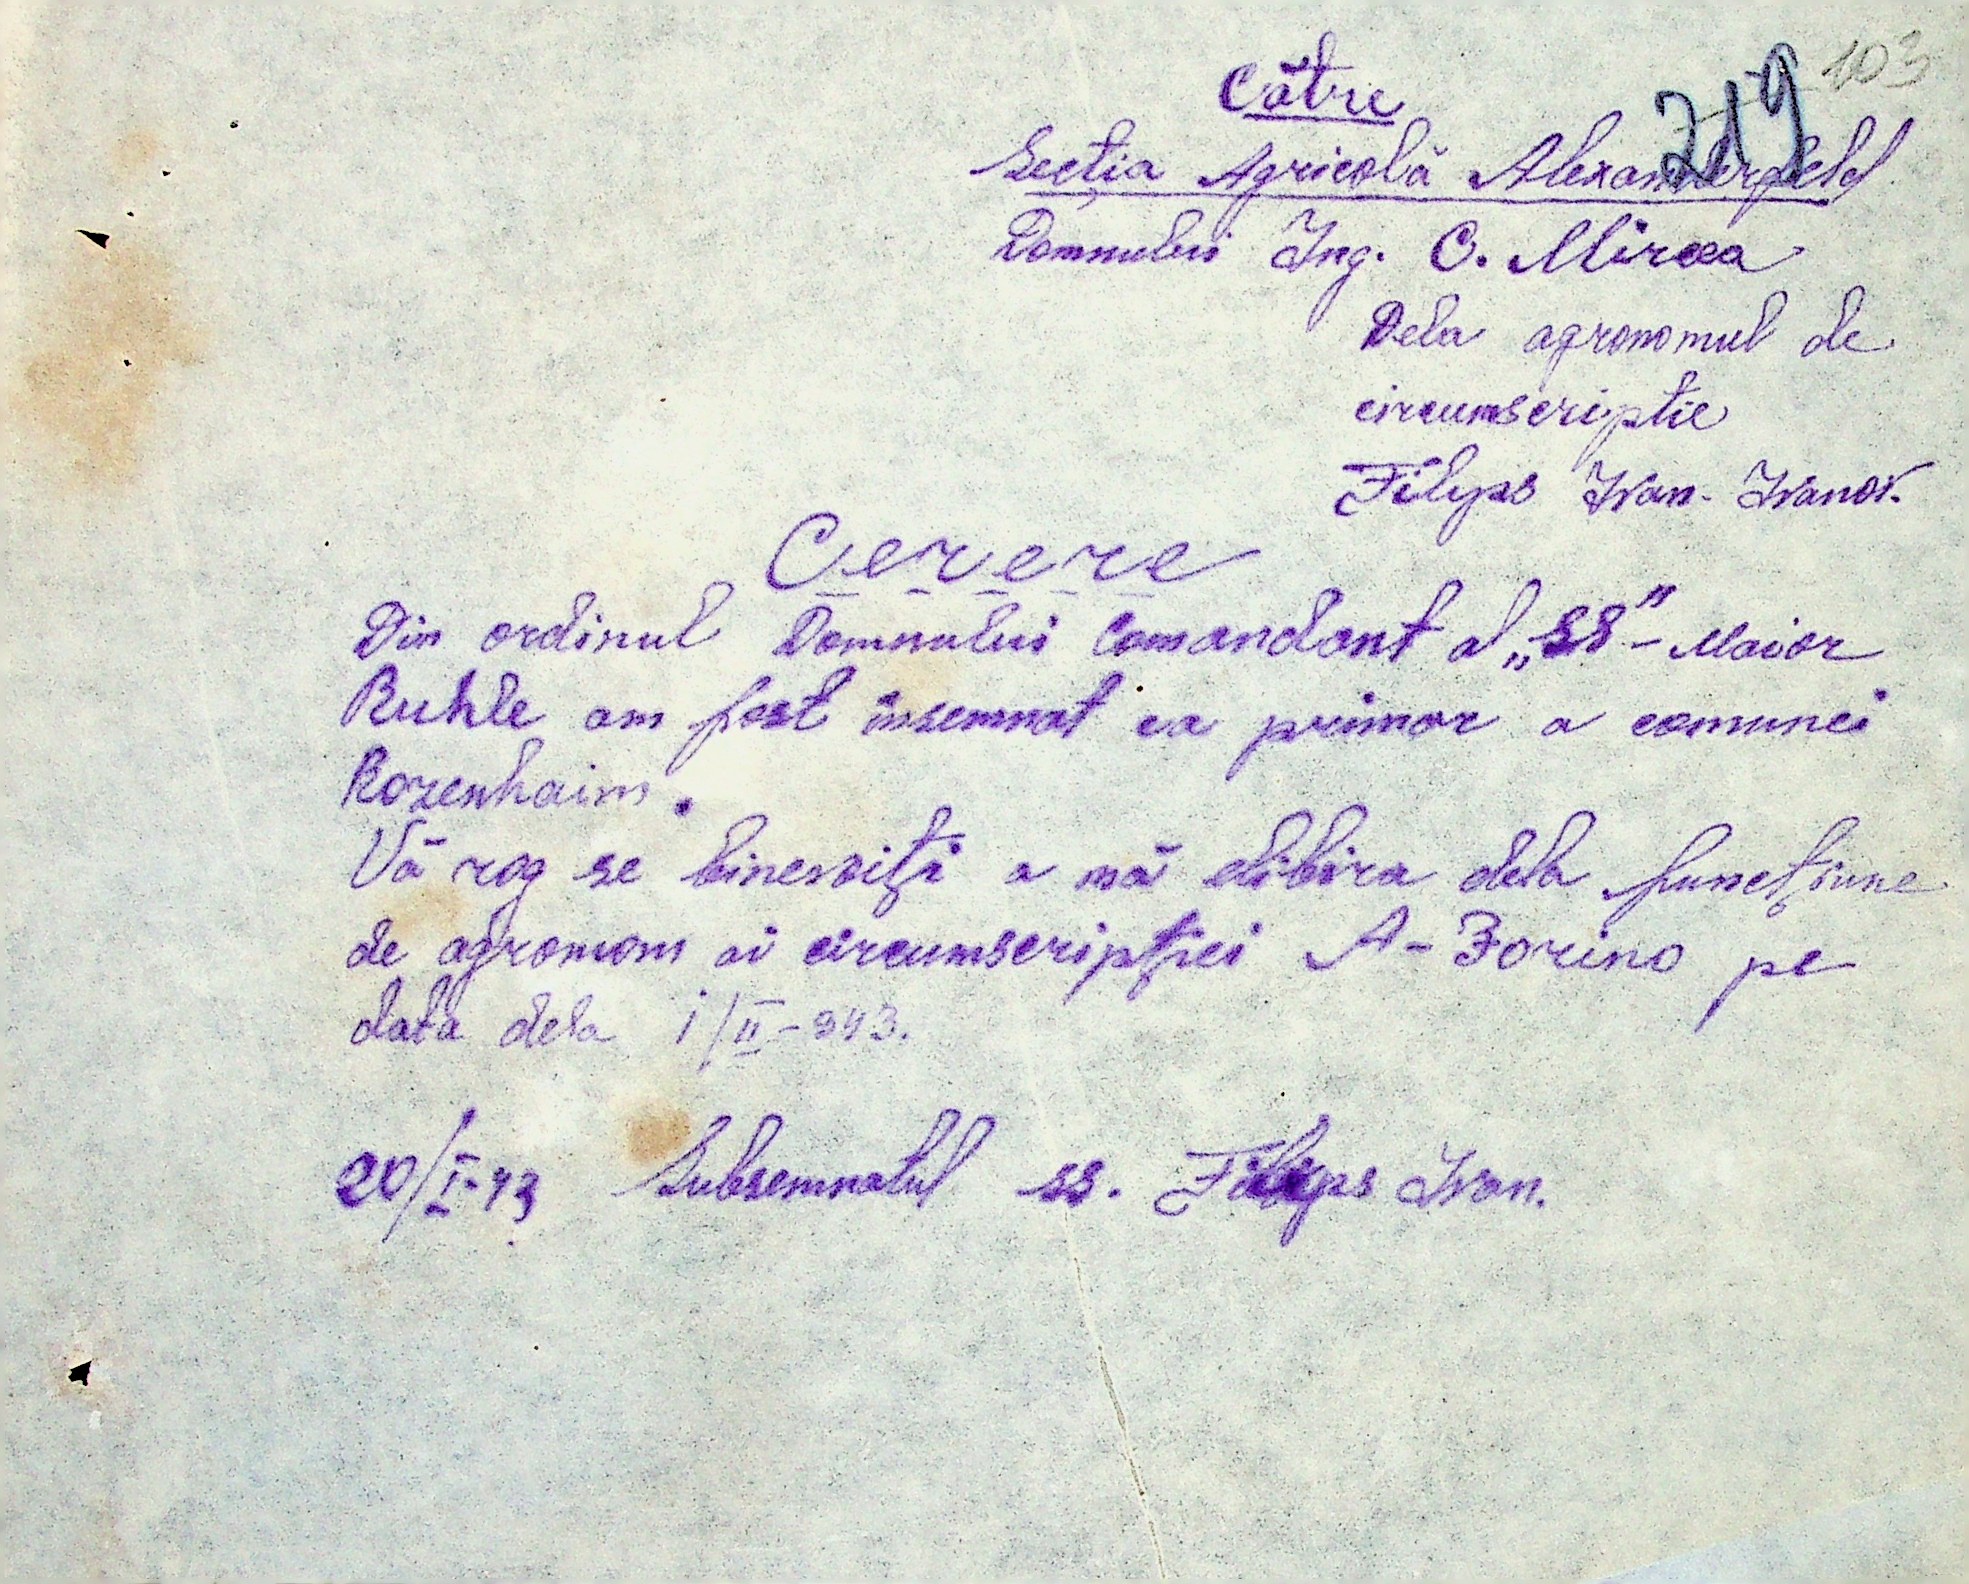 103
219
Către
Secția Agricolă Alexanderfeld
Domnului Ing. C. Mircea
Dela agronomul de
circumscriptie
Filyps Ivan Ivanov.
Cerere
Din ordinul Domnului Comandant al „SS" - Maior
Ruhle am fost însemnat ca primar a comunei
Rozenhaim.
Vă rog se binevoiți a mă elibira dela funcțiune
de agronom ai circumscripției A-Zorino pe
data dela 1/II-943.
20/I-43 Subsemnatul ss. Filyps Ivan.